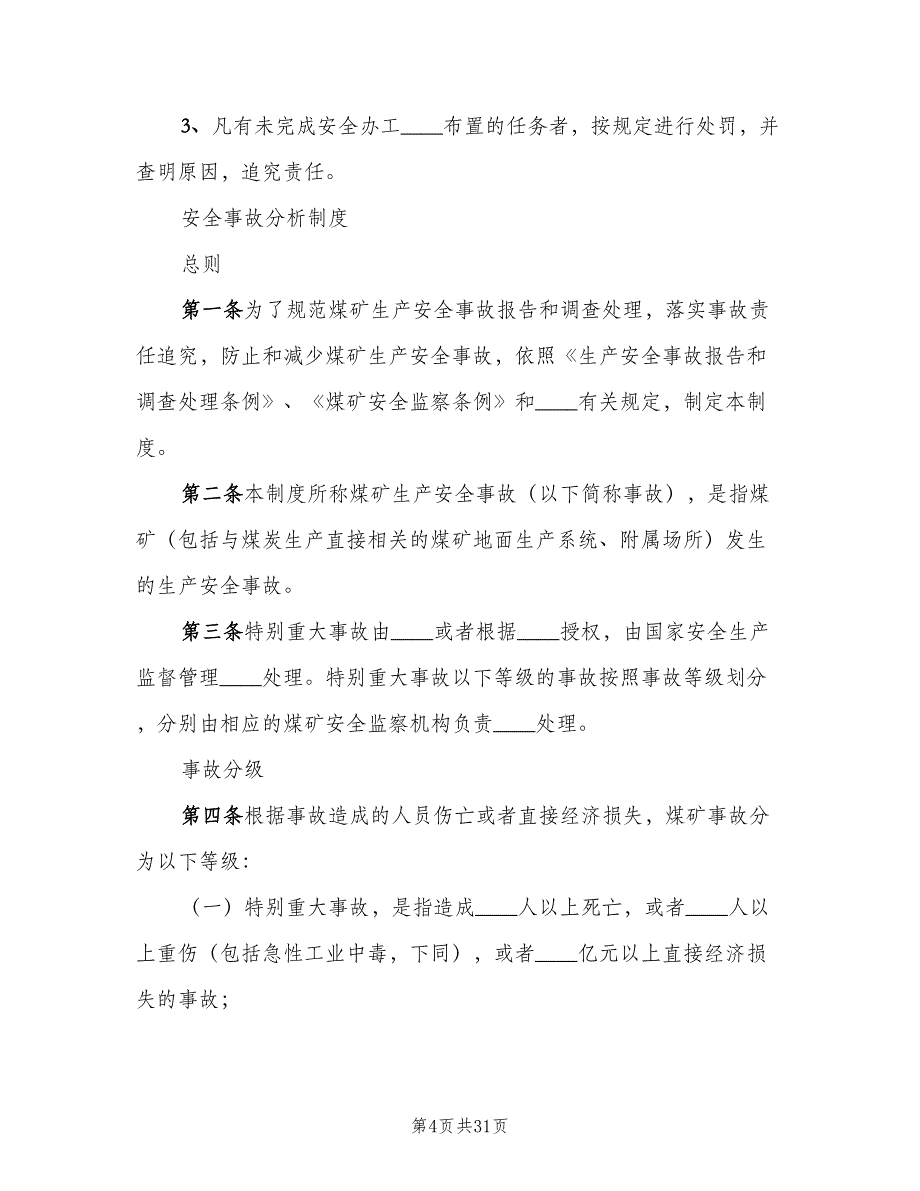 3、凡有未完成安全办工____布置的任务者，按规定进行处罚，并
查明原因，追究责任。
安全事故分析制度
总则
第一条为了规范煤矿生产安全事故报告和调查处理，落实事故责
任追究，防止和减少煤矿生产安全事故，依照《生产安全事故报告和
调查处理条例》、《煤矿安全监察条例》和____有关规定，制定本制
度。
第二条本制度所称煤矿生产安全事故（以下简称事故），是指煤
矿（包括与煤炭生产直接相关的煤矿地面生产系统、附属场所）发生
的生产安全事故。
第三条特别重大事故由____或者根据____授权，由国家安全生产
监督管理____处理。特别重大事故以下等级的事故按照事故等级划分
，分别由相应的煤矿安全监察机构负责____处理。
事故分级
第四条根据事故造成的人员伤亡或者直接经济损失，煤矿事故分
为以下等级：
（一）特别重大事故，是指造成____人以上死亡，或者____人以
上重伤（包括急性工业中毒，下同），或者____亿元以上直接经济损
失的事故；
第4页共31页